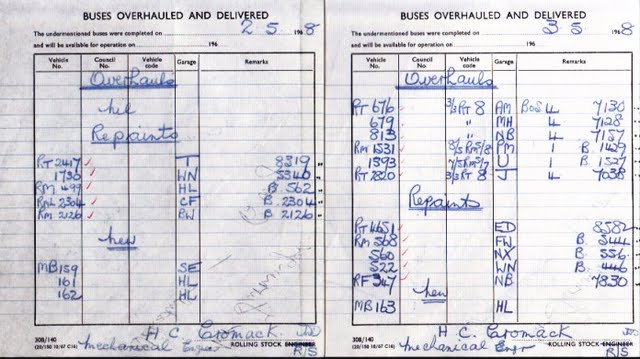 BUSES OVERHAULED AND DELIVERED
The undermentioned buses were completed on 2 5 1968
and will be available for operation on 196
Vehicle No. Council No. Vehicle code Garage Remarks
Overhauls
nil
Repaints
RT 2417 T 8319 "
1730 WN 5340 "
RM 499 HL B. 562 "
RML 2304 CF B. 2304 "
RM 2126 BW B. 2126 "
new
MB 159 SE
161 HL
162 HL
H. C. Cromack
308/140
(20/150 10/67 C16) ROLLING STOCK ENGINEER
Mechanical Engineer R/S
BUSES OVERHAULED AND DELIVERED
The undermentioned buses were completed on 3 5 1968
and will be available for operation on 196
Vehicle No. Council No. Vehicle code Garage Remarks
Overhauls
RT 676 3/3 RT 8 AM Bos 4 7130
679 " MH 4 7128
813 " NB 4 7157
RM 1531 PM 1 B. 1429
1393 U 1 B. 1527
RT 2820 3/3 RT 8 J 4 7038
Repaints
RT 4651 ED 8582
RM 568 FW B. 544
560 NX B. 556
522 WN B. 446
RF 347 NB 7830
new
MB 163 HL
H. C. Cromack
308/140
(20/150 10/67 C16) ROLLING STOCK ENGINEER
Mechanical Engr R/S